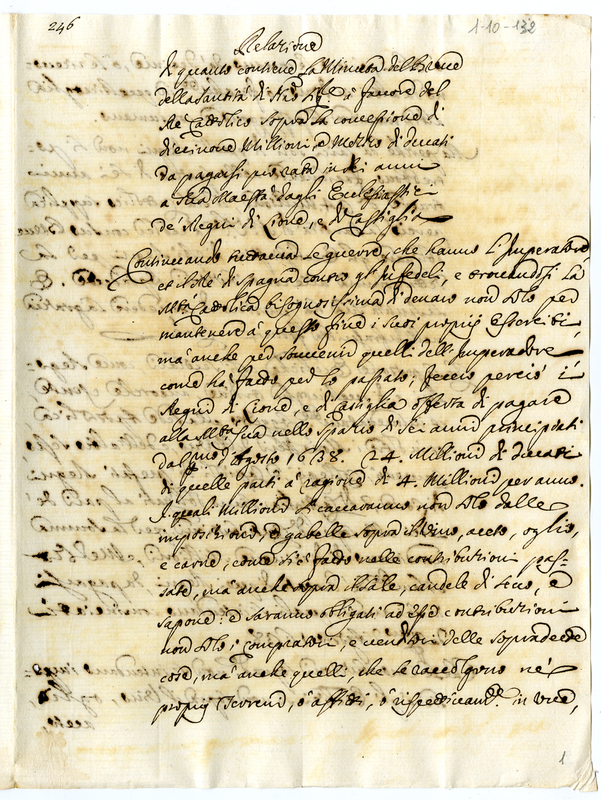 246
1-10-132
Relatione
di quanto contiene la Minuta del Breve
della Santità di N.ro Sig.re à favore del
Re Cattolico sopra la concessione di
diecinove Millioni, e Mezzo di ducati
da pagarsi pro rata in sei anni
a Sua Maestà dagli Ecclesiastici
de' Regni di Leone, e di Castiglia
Continuando tuttavia le guerre, che hanno l'Imperatore,
et il Rè di Spagna contro gl'Infedeli, e trovandosi la
M.tà Cattolica bisognosissima di denaro non solo per
mantenere à questo fine i suoi proprij Eserciti,
mà anche per sovvenir quelli dell'Imperadore
come hà fatto per lo passato; fecero perciò i
Regni di Leone, e di Castiglia offerta di pagare
alla M.tà Sua nello spatio di sei anni principiati
dal p.mo d'Agosto 1638. 24. Millioni di ducati
di quelle parti à ragione di 4. Millioni per anno.
I quali Millioni si caveranno non solo dalle
impositioni, e gabelle sopra il vino, aceto, oglio,
e carne, come si è fatto nelle contributioni pas-
sate, mà anche sopra il sale, candele di sevo, e
sapone: e saranno obligati ad d.e contributioni
non solo i compratori, e venditori delle sopradette
cose, mà anche quelli, che le raccolgono ne'
proprij Terreni, ò affitti, ò rispettivam.te in vece,
1